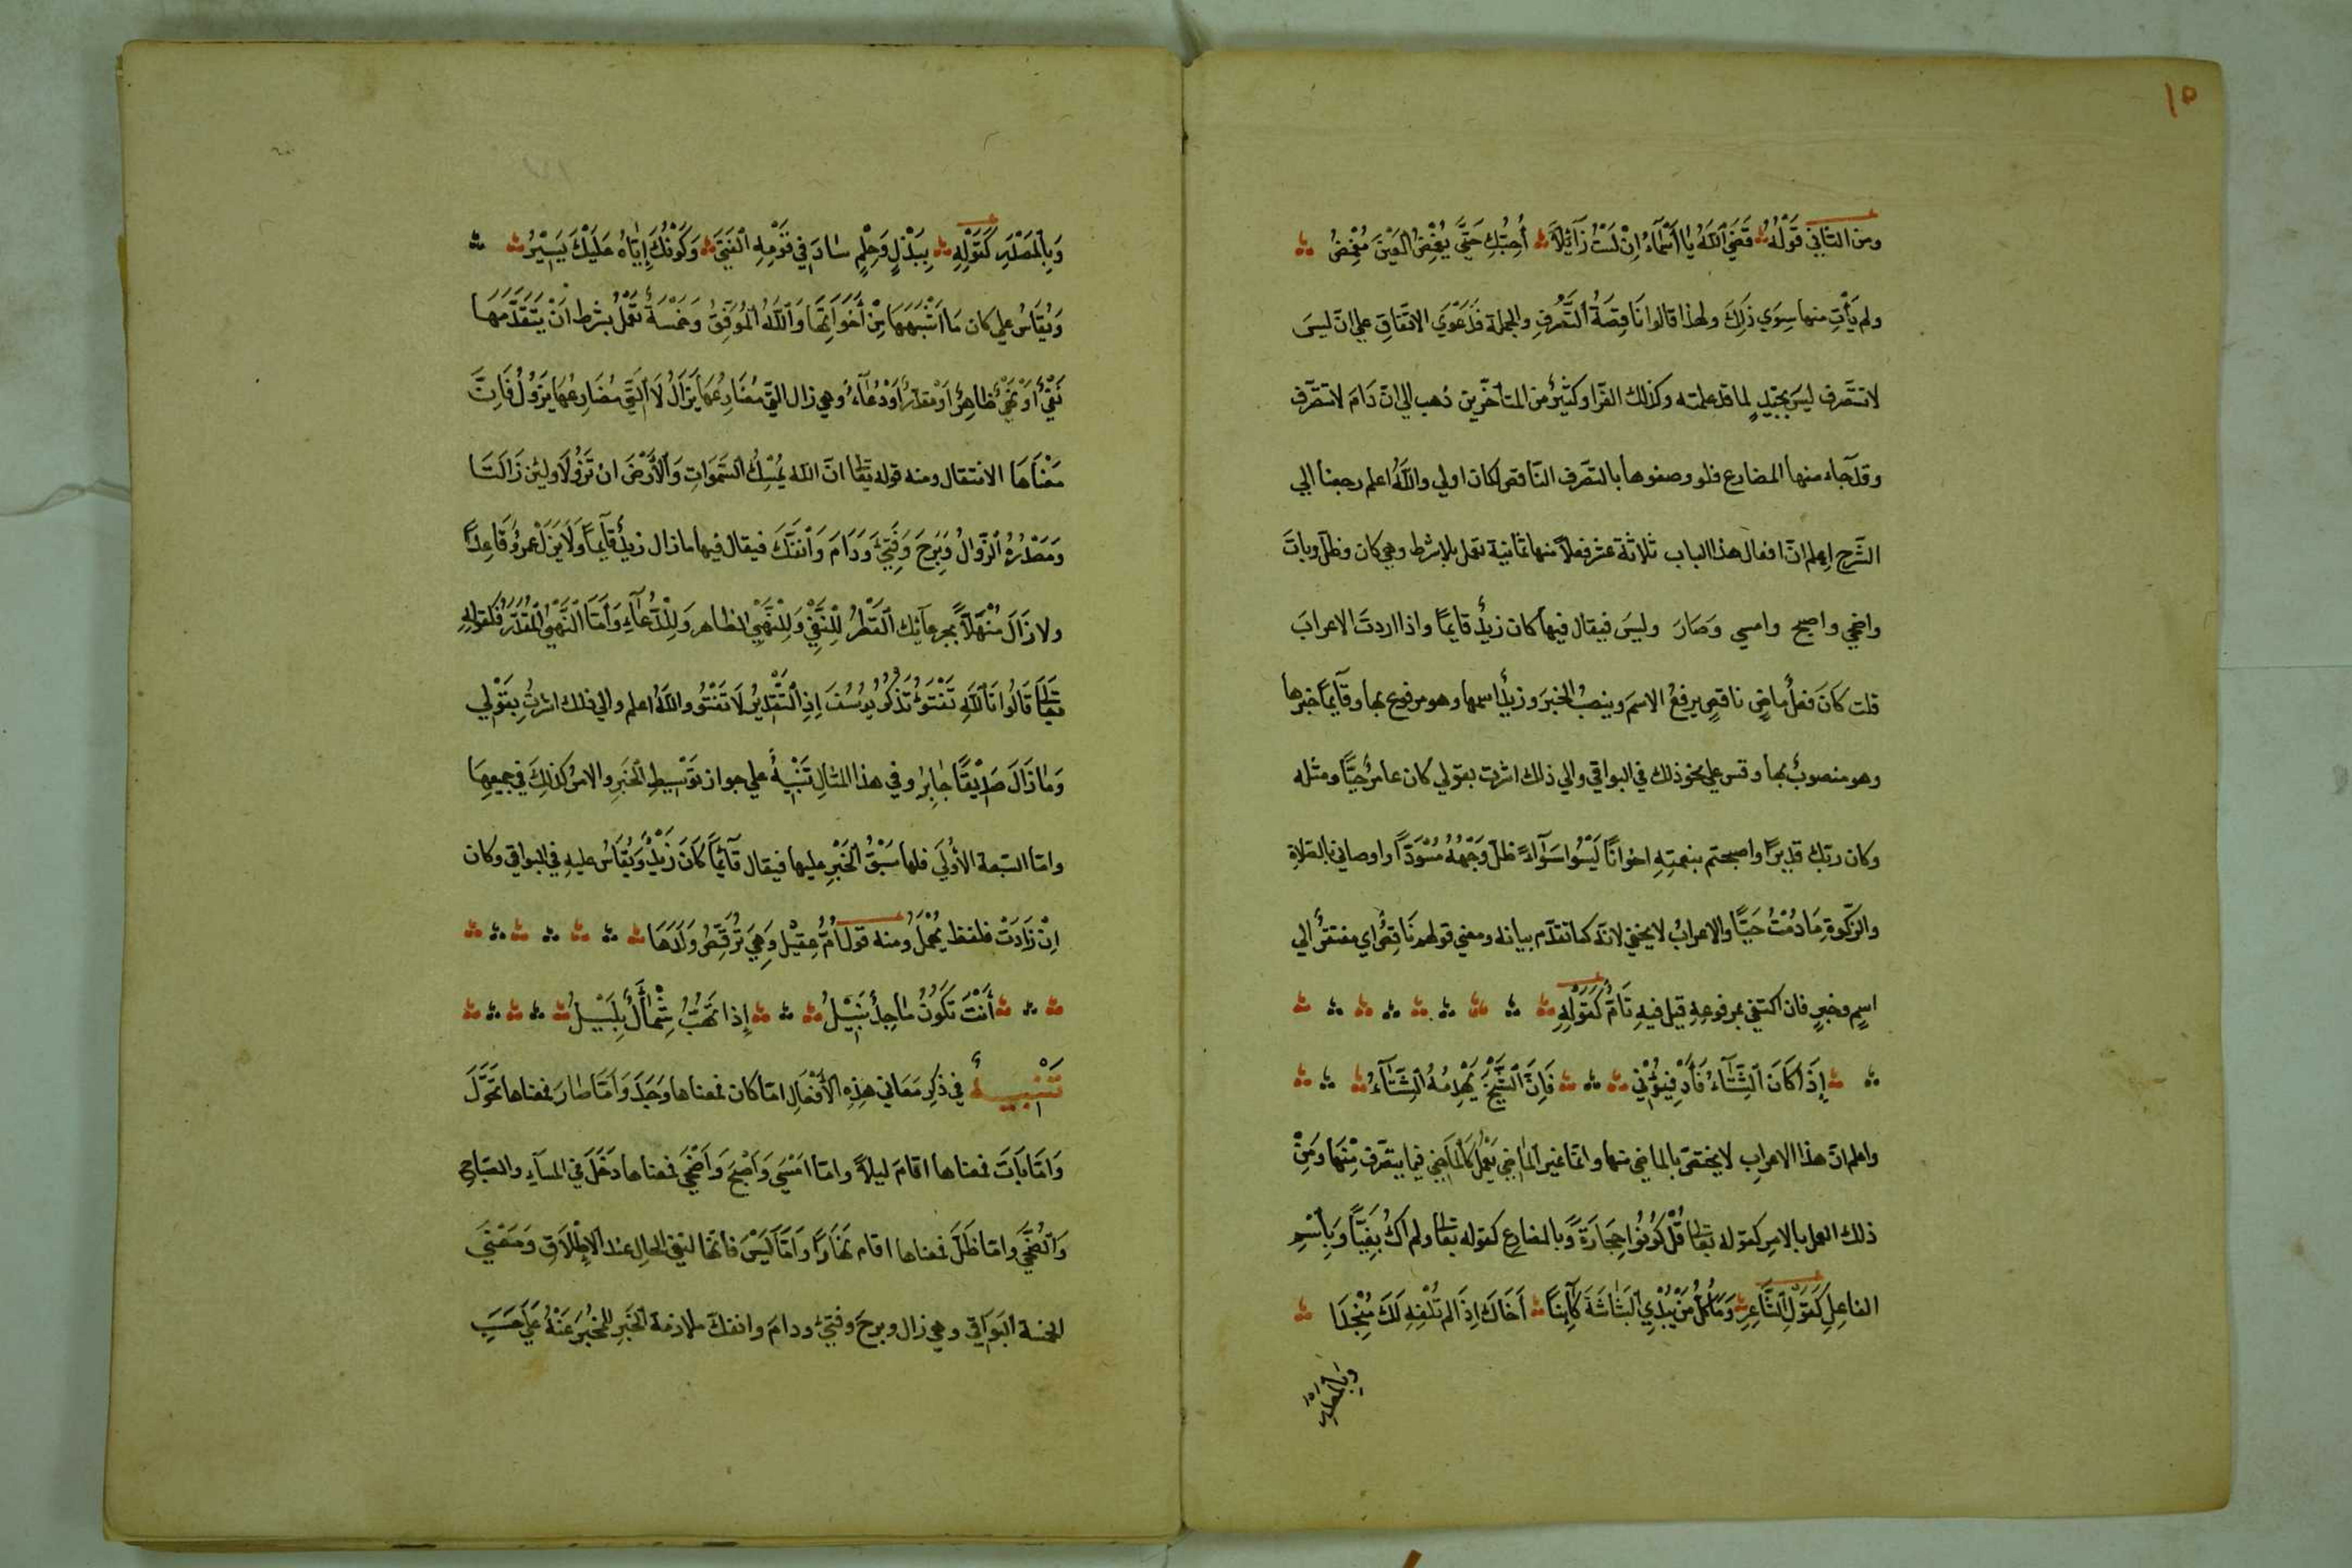 ١٥
ومن الثاني قَوْلُهُ قَضَي اَللهُ يا اَسْمَآءُ اِنْ لَسْتُ زَآئِلاً أُحِبُّكِ حَتَّي يُغْمِضَ اَلْعَيْنَ مُغْمِضُ
ولم يَأْتِ منها سِوَي ذَلِكَ ولهذا قالوا نَاقِصَةُ اَلتَّصَرُّفِ والجملة فَدَعْوَي الاتفَاقِ علي انّ ليسَ
لا تتصّرف ليسَ بجيّدٍ لما قد علمته وكذلك الفرّا وكثيرٌ من المتأخّرين ذهب الي انّ دَامَ لا تتصّرف
وقد جاء منها المضارع فلو وصفوها بالتصّرف النّاقص لكان اولي واللهُ اعلم رجعنا الي
الشَّرح اعلم انّ افعال هذا الباب ثلاثة عشر فعلاً منها ثمانية تعمل بلا شرط وهي كان وظلّ وباتَ
واضحي واصبح وامسي وَصَارَ وليسَ فيقال فيها كان زيدٌ قايمًا واذا اردتَ الاعرابَ
قلت كَانَ فعلٌ ماضٍ ناقصٍ يرفعُ الاسمَ وينصبُ الخبرَ وزيدٌ اسمها وهو مرفوع بها وقآيمًا خبرها
وهو منصوبٌ بها وقس علي نحو ذلك في البواقي والي ذلك اشرت بقولي كان عامرٌ حيًّا ومثله
وكان ربّك قديرًا واصبحتم بنعمتِهِ اخوانًا لَيْسُوا سَوَآءً ظلّ وَجْهُهُ مُسْوَدًّا واوصاني بالصّلاةِ
والزّكوةِ مَا دُمْتُ حَيًّا والاعرابُ لا يخفي لانّه كما تقدّم بيانه ومعني قولهم نَاقِصٌ اي مفتقرٌ الي
اسمٍ وخبرٍ فان اكتفي بمرفوعِهِ قيل فيهِ تَامٌّ كَقَوْلِهِ
إِذَا كَانَ اَلشِّتَآءُ فَأَدْفِئُوْنِي فَاِنَّ اَلشَّيْخَ يَهْدِمُهُ اَلشِّتَآءُ
واعلم انّ هذا الاعرابِ لا يختصّ بالماضي منها وانّما غير اَلماضي يَعْمَلُ كَالْمَاضِي فيما يتصّرف مِنْهَا وَمِنْ
ذلك العمل بالامرِ كقوله تعالي قُلْ كُونُوا حِجَارَةً وَبالمضارِع كقوله تعالي ولم اكُ بَغِيًّا وَبِاَسْمِ
الفاعِلِ كَقَوْلِ اَلشَّاعِرِ وَمَا كُلُّ مَنْ يُبْدِي اَلْبَشَاشَةَ كَآئِنًا أَخَاكَ اِذَا لَم تُلْفِهِ لَكَ مُنْجِدَا
وبالمصدر
وَبِالْمَصْدَرِ كَقَوْلِهِ بِبَذْلٍ وَحِلْمٍ سَادَ في قَوْمِهِ اَلْفَتَي وَكَوْنُكَ إِيَّاهُ عَلَيْكَ يَسِيْرُ
وَيُقَاسُ علي كان مَا اَشْبَهَهَا مِنْ أَخَوَاتِهَا وَاللهُ اَلْمُوَفِّقُ وَخَمْسَةٌ تَعْمَلُ بشرط اَنْ يَتَقَدَّمَهَا
نَفْيٌ أَوْ نَهْيٌ ظَاهِرٌ أَوْ مقدّرٌ أَوْ دُعَآءٌ وهي زال الّتي مُضَارِعُهَا يَزَالُ لَا اَلَّتِي مُضَارِعُهَا يَزُوْلُ فَاِنَّ
مَعْنَاهَا الانتقال ومنه قوله تعالي انّ الله يُمْسِكُ اَلسَّمَوَاتِ وَاَلْأَرْضَ ان تَزُوْلَا ولئِن زَالَتَا
وَمَصْدَرُهُ اَلزَّوَالُ وَبَرِحَ وَفَتِيَ وَدَامَ وَاَنْفَكَّ فيقال فيها ما زال زيدٌ قآيمًا وَلَا يَزَلْ عمروٌ قَاعِدًا
ولا زَالَ مُنْهَلاًّ بجرعآئِك اَلْقَطْرُ لِلْنَّفْيِ وَلِلْنَّهْيِ الظاهر وَلِلْدُّعَآءِ وَاَمَّا اَلنَّهْيُ اَلْمُقَدَّرُ فَكقولِهِ
تعالي قَالُوا تَاللهِ تَفْتَؤُ تَذْكُرُ يُوسُفَ اِذِ اَلتَّقْدِيْرُ لَا تَفْتَؤُ واللهُ اعلم والي ذلك اشرتُ بِقَوْلِي
وَمَا زَالَ صَدِيْقًا جَابِرٍ وفي هذا المثالِ تَنْبِيْهٌ علي جواز تَوْسِيطِ اَلْخَبَرِ والامر كَذلِكَ في جميعِهَا
وامّا السّبعة الأُوْلَي فلها سَبْقُ اَلْخَبَرِ عليها فيقال قآئِمًا كَانَ زَيْدٌ وَيُقَاسُ عليهِ في البواقي وكان
اِنْ زَادَتْ فلفظ يُهْمَلُ ومنه قول اُمِّ عَقِيْلٍ وَهِيَ تُرَقِّصُ وَلَدَهَا
أَنْتَ تَكُوْنُ مَاجِدٌ نَبِيْلُ إِذَا تَهُبُّ شَمْأَلٌ بَلِيْلُ
تَنْبِيْهٌ في ذِكِر مَعَاني هذِهِ اَلْأَفْعَالِ امّا كان فمعناها وَجَدَ وَاَمَّا صَارَ فمعناها تَحَوَّلَ
وَامَّا بَاتَ فمعناها اقامَ ليلاً وامّا امْسَي وَاَصْبَحَ وَاَضْحَي فمعناها دَخَلَ في المسآءِ والصّباحِ
وَاَلضُّحَي وامّا ظَلَّ فمعناها اقام نَهَارًا وَامَّا لَيْسَ فانّها لنفي الحالِ عند اَلاِطْلَاقِ وَمَعْنَي
الخمسة اَلْبَوَاقِي وهي زال وبرحَ وفتيَ ودامَ وانفكّ ملازمة اَلْخَبَرِ اَلْمُخْبَرَ عَنْهُ عَلَي حَسَبِ